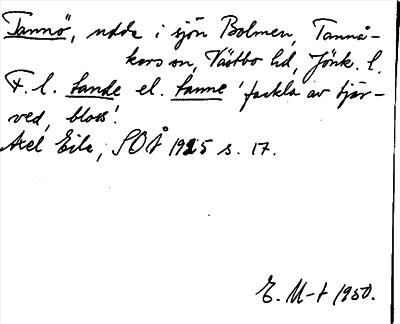 Tannö, udde i sjön Bolmen, Tannå-
kers sn, Västbo hd, Jönk. l.
F. l. tande el. tanne 'fackla av tjär-
ved, bloss'.
Axel Eile, SOÅ 1925 s. 17.
E. M-t 1950.